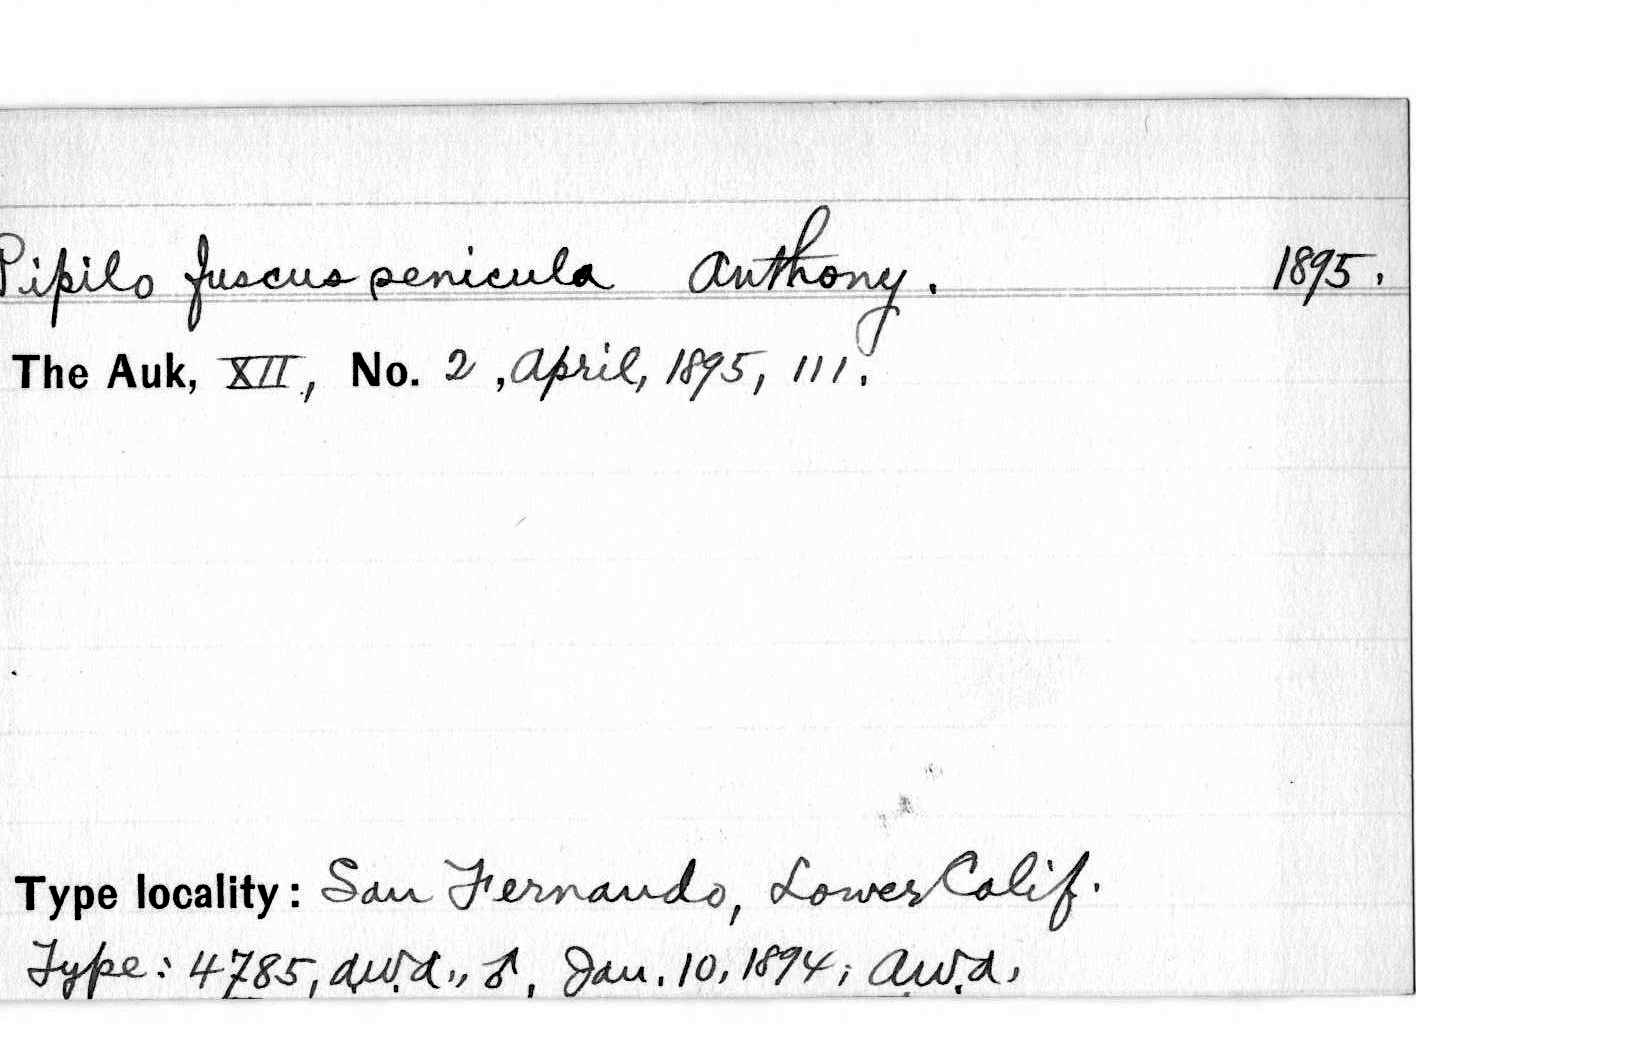 Pipilo fuscus senicula Anthony. 1895.
The Auk, XII, No. 2, April, 1895, 111.
Type locality: San Fernando, Lower Calif.
Type: 4785, A.W.A., ♂, Jan. 10, 1894; A.W.A.